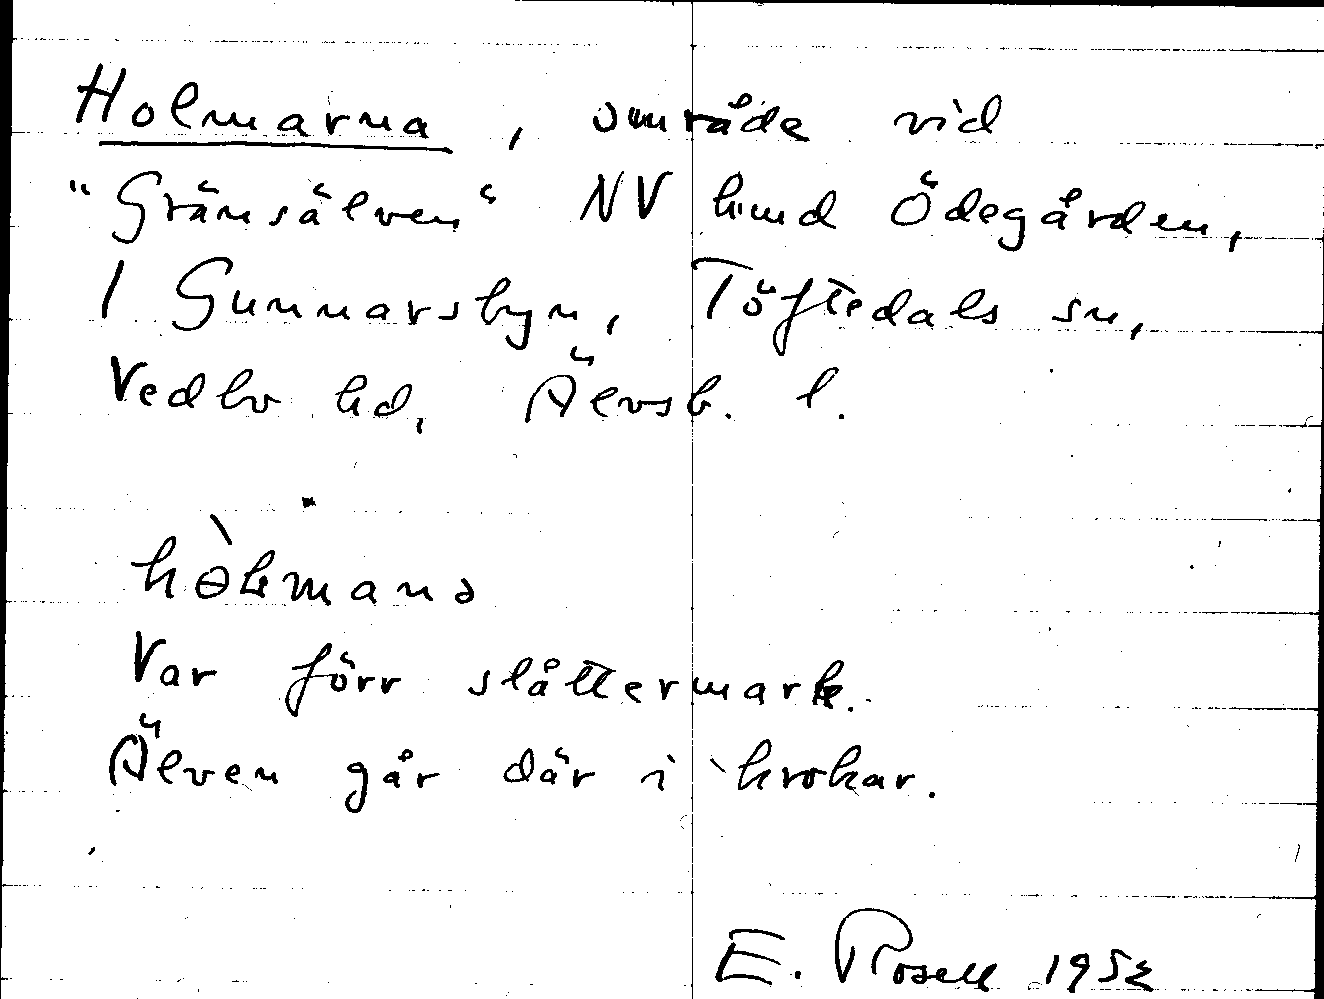 Holmarna, område vid
"Gränsälven" NV hmd Ödegården,
1 Gunnarsbyn, Töftedals sn,
Vedbo hd, Älvsb. l.
Var förr slåttermark.
Älven går där i krokar.
E. Rosell 1952